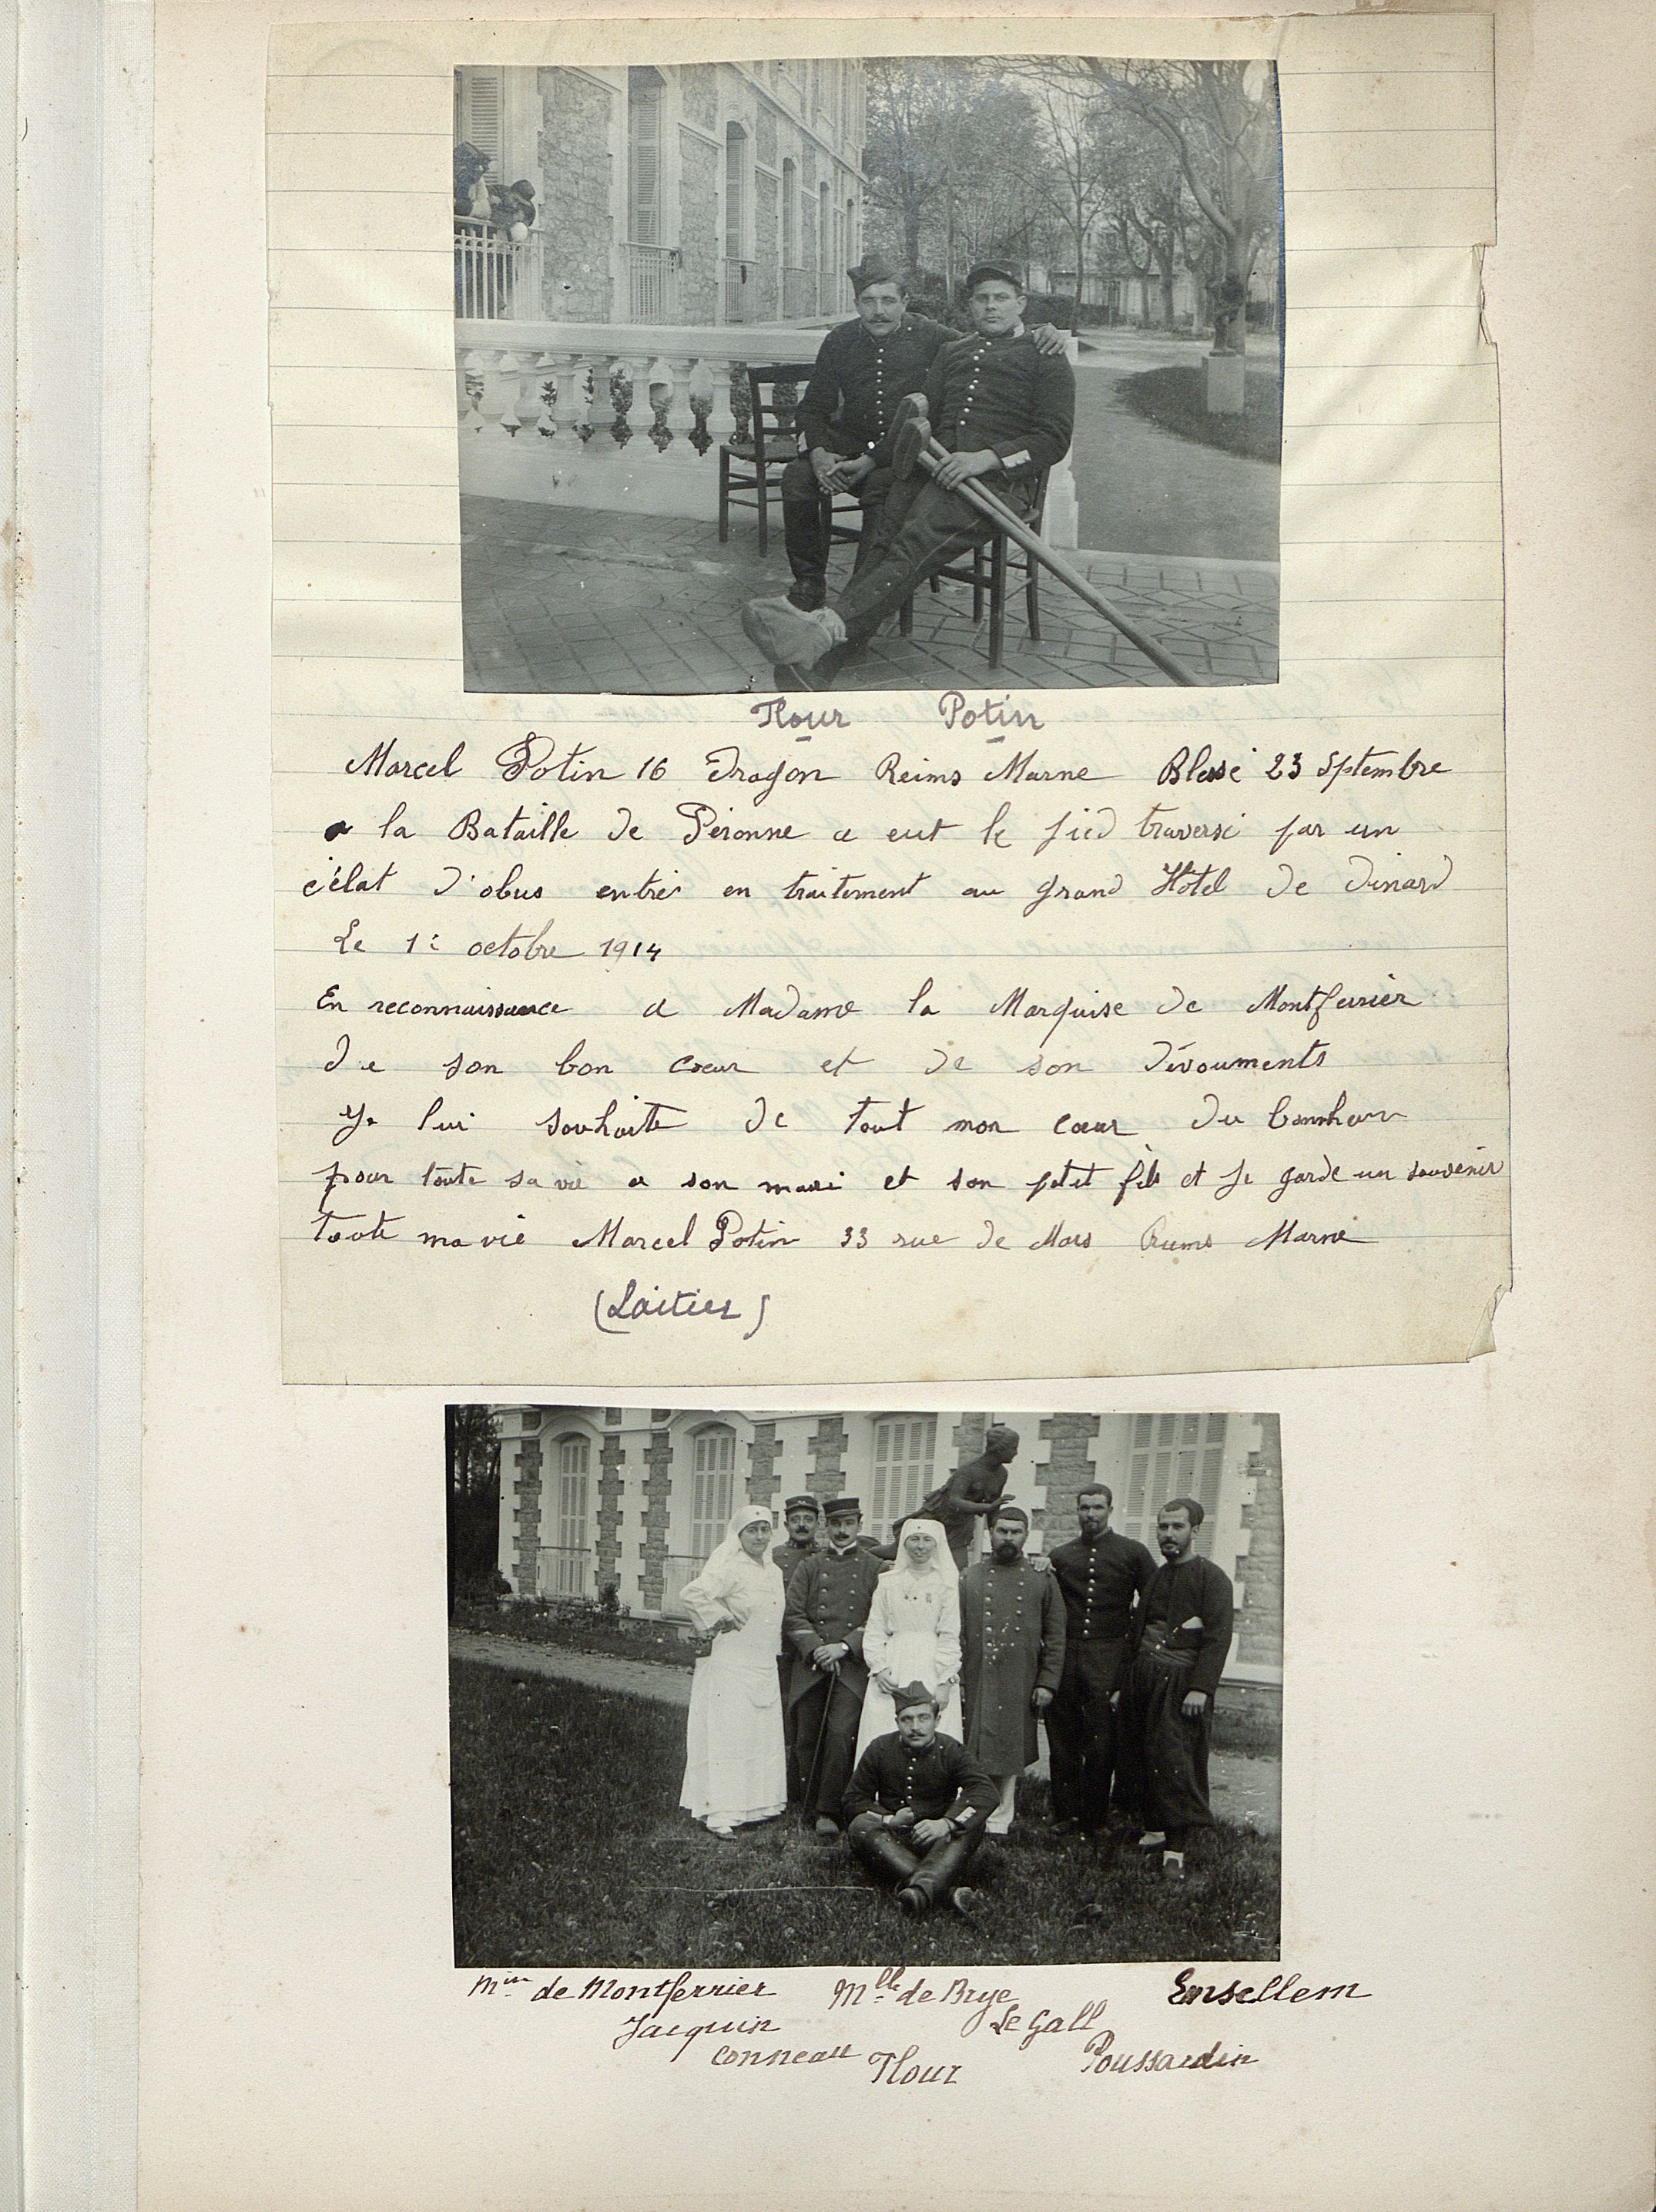 Flour Potin
Marcel Potin 16 Dragon Reims Marne Blessé 23 Sptembre
a la Bataille de Péronne a eut le pied traversé par un
éclat d'obus entré en traitement au grand Hôtel de Dinard
Le 1e octobre 1914
En reconnaissance a Madame la Marquise de Montferrier
de son bon cœur et de son dévouments
Je lui souhaite de tout mon cœur du bonheur
pour toute sa vie a son mari et son petit fils et je garde un souvenir
toute ma vie Marcel Potin 33 rue de Mars Reims Marne
(Laitier)
Mise de Montferrier Mlle de Brye Ensellem
Jacquin Le Gall
Conneau Flour Poussardin